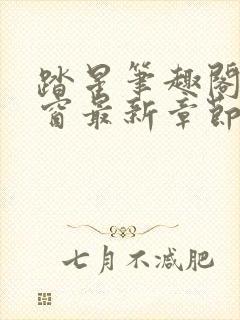 踏星笔趣阁
窗最新章節
七月不减肥